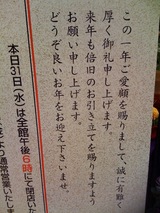 この一年ご愛顧を賜りまして、誠に有難く
厚く御礼申し上げます。
来年も倍旧のお引き立てを賜りますよう
お願い申し上げます。
どうぞ良いお年をお迎え下さいませ。
本日31日(水)は全館午後6時にて閉店いた
より通常営業いたしま